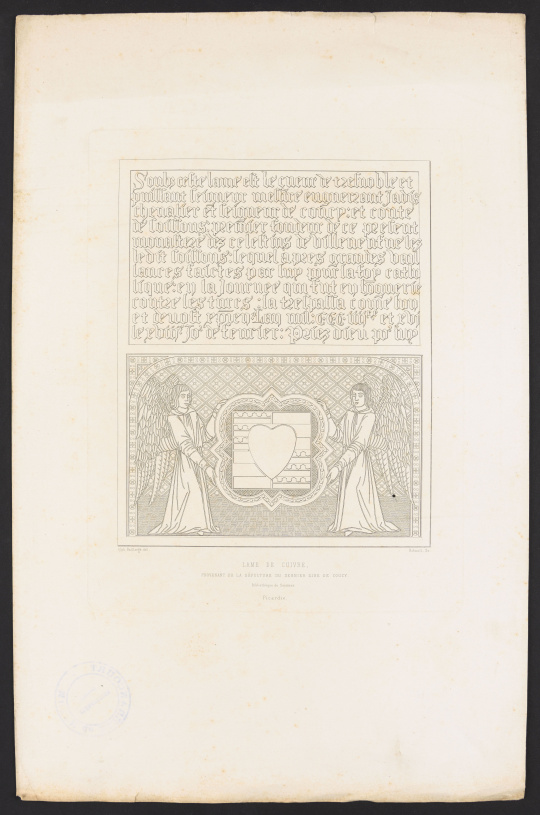 Soubz ceste lame est le cueur de tresnoble et
puissant seigneur messire enguerrant Jadis
chevalier et seigneur de coucy: et conte
de soissons: premier fondeur de ce present
monastere des celestins de villeneufve les
ledit soissons: lequel apres grandes vail
lances faictes par luy pour la foy catho
lique: en la Journee qui fut en honguerie
contre les turcs: la trespassa comme bon
et devost
le xviije Jor de fevrier: Priez dieu por luy
LAME DE CUIVRE,
PROVENANT DE LA SÉPULTURE DU DERNIER SIRE DE COUCY
Bibliothèque de Soissons
Picardie